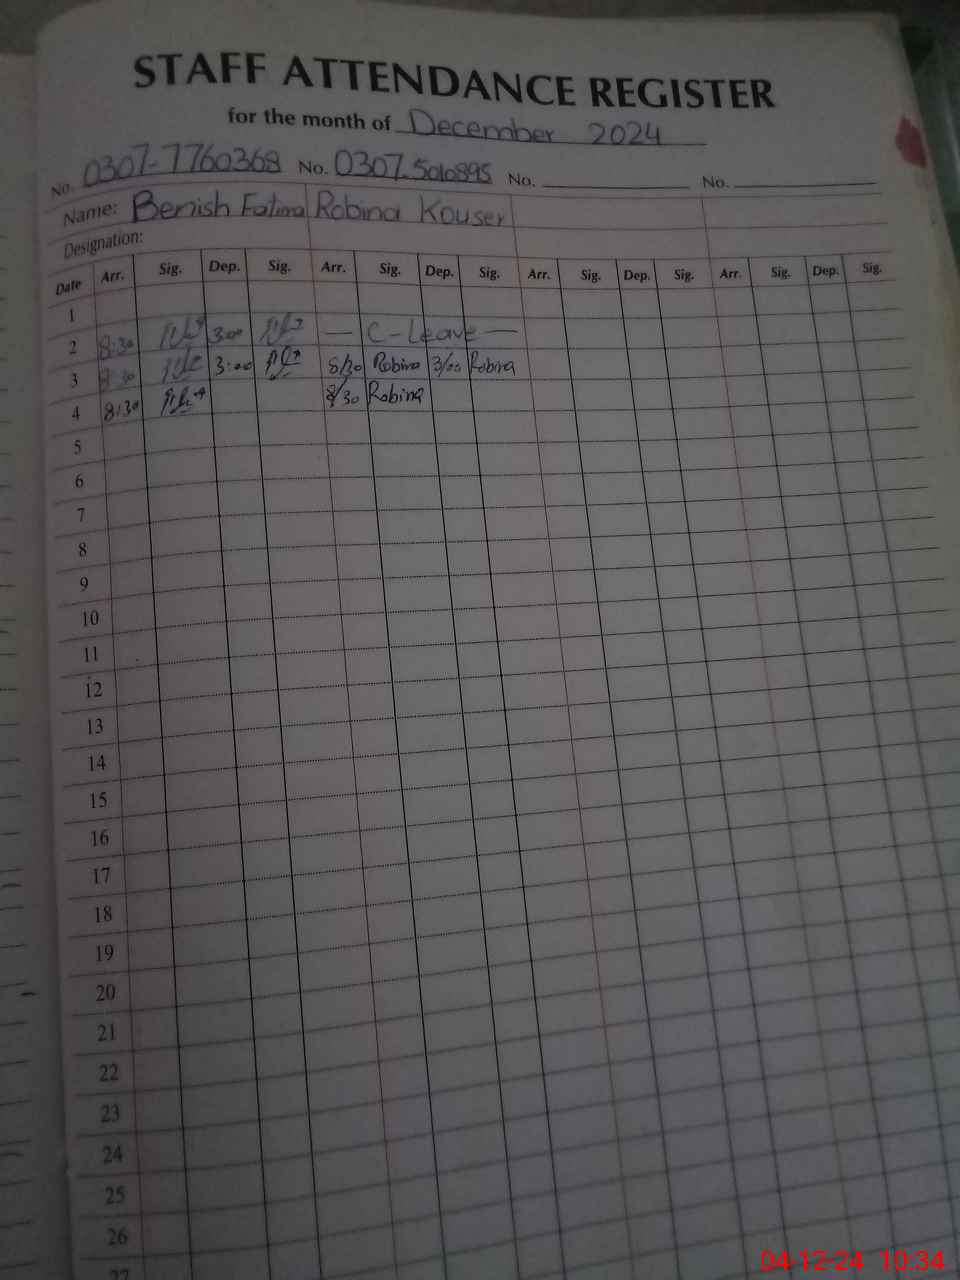 STAFF ATTENDANCE REGISTER
for the month of December 2024
No. 0307-7760368 No. 0307.5010895 No. No.
Name: Benish Fatima Robina Kouser
Designation:
Date Arr. Sig. Dep. Sig. Arr. Sig. Dep. Sig. Arr. Sig. Dep. Sig. Arr. Sig. Dep. Sig.
1
2 8:30 3:00 — C-Leave —
3 8:30 3:00 8/30 Robina 3/00 Robina
4 8:30 8/30 Robina
5
6
7
8
9
10
11
12
13
14
15
16
17
18
19
20
21
22
23
24
25
26
27
04-12-24 10:34